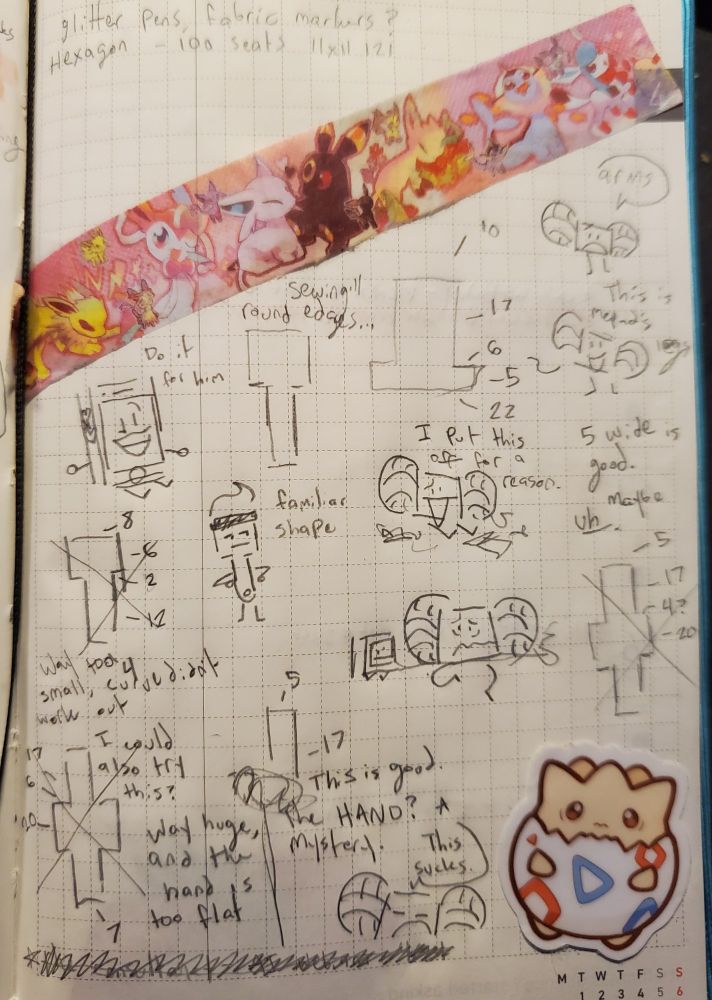 glitter pens, fabric markers?
Hexagon - 100 seats 11x11 121
4
arms
10
Sewing!!!
round edges...
17
6
5
22
This is
Do it
for him
I put this
off for a
reason.
5 wide is
good.
maybe
uh.
familiar
shape
8
6
2
12
5
17
4?
20
Way too
small, curve didn't
work out
5
17
This is good.
The HAND? A
mystery.
I could
also try
this?
17
6
20
7
Way huge,
and the
hand is
too flat
This
sucks.
M T W T F S S
1 2 3 4 5 6